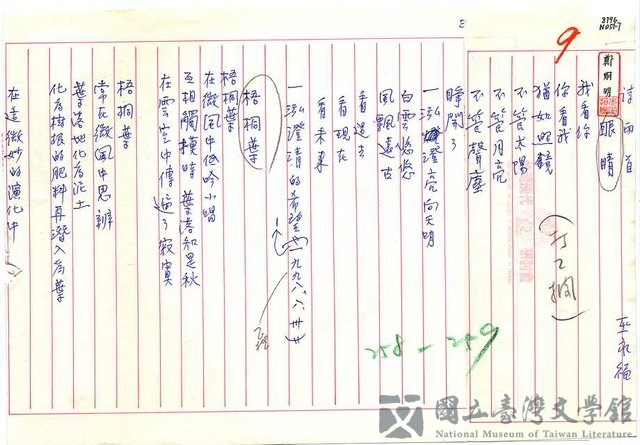 8796
N057-7
詩兩首
巫永福
鄭烱明
眼睛
9
我看你
你看我
猶如照鏡
不管太陽
不管月亮
不管聲塵
(打工欄)
睜開了
一泓澄亮向天明
白雲悠悠
風飄遠古
看過去
看現在
看未來
一泓澄清的希望
(一九九八、六、廿廿)
258-259
梧桐葉
梧桐葉
在微風中低吟小唱
互相觸摸時 葉落知是秋
在雲空中傳遍了寂寞
梧桐葉
常在微風中思辨
葉落地化為泥土
化為樹根的肥料再潛入為葉
在這微妙的演化中
國立臺灣文學館
National Museum of Taiwan Literature